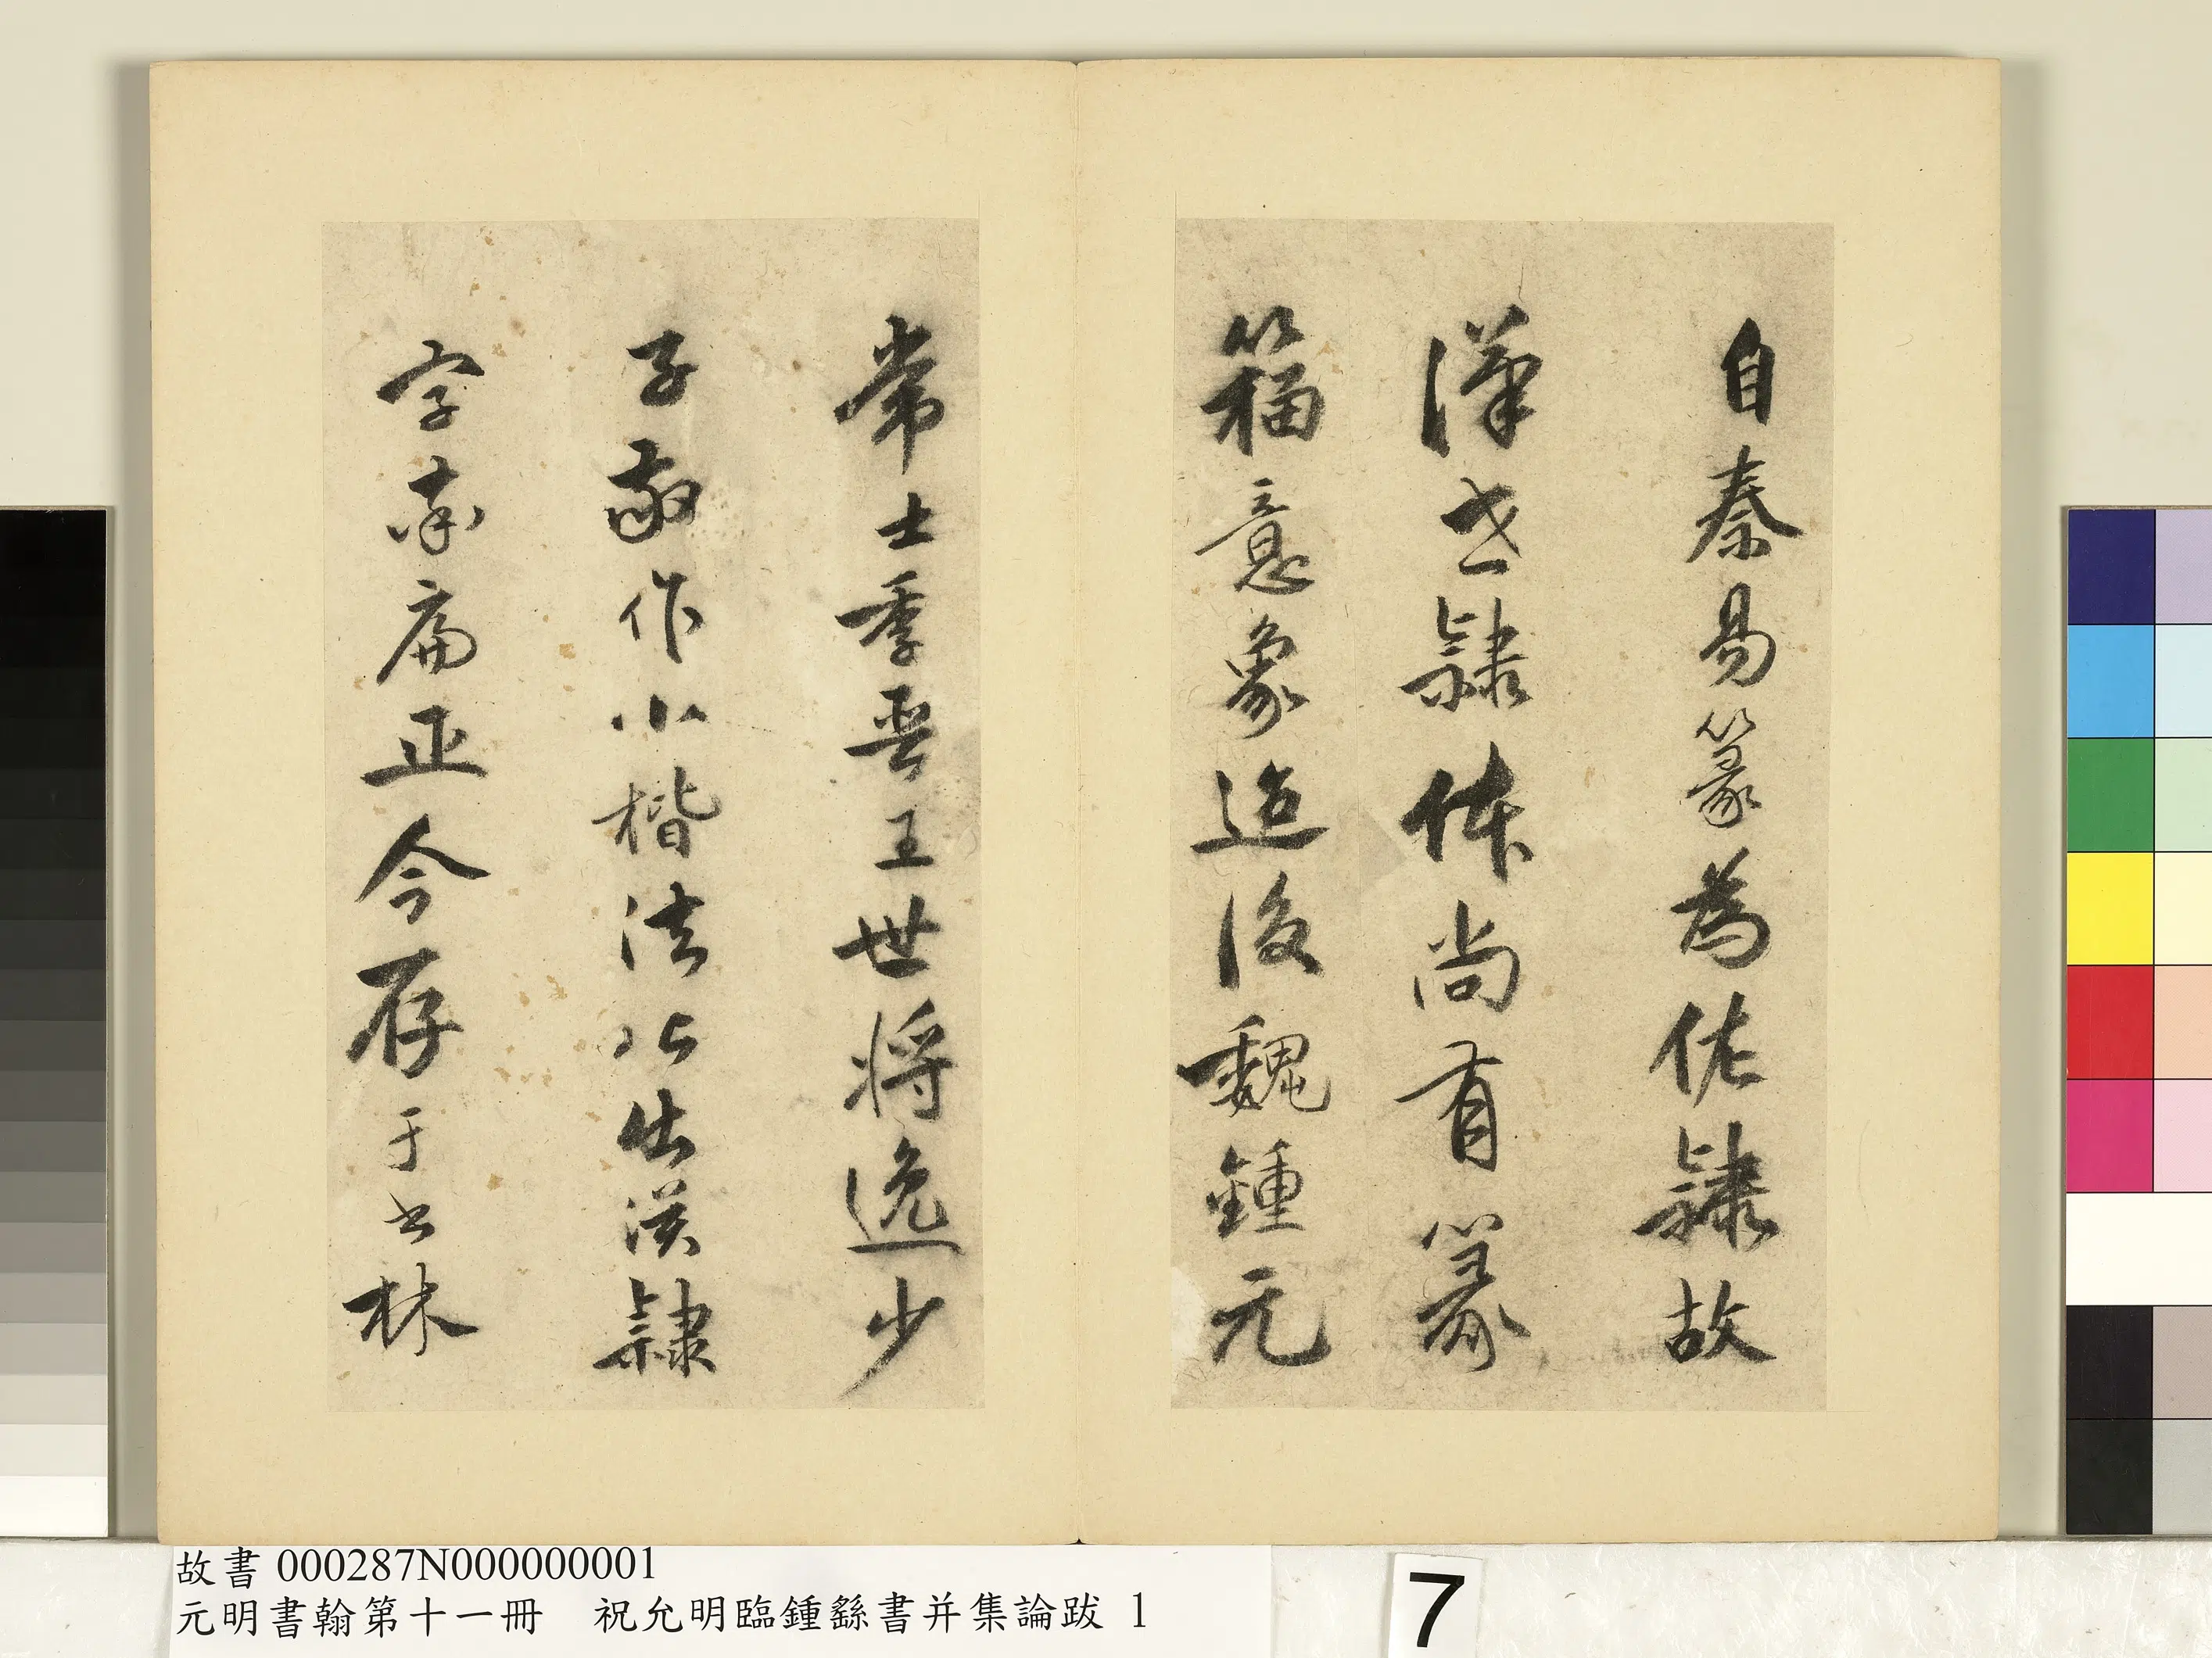 自秦易篆為佐隸故
漢世隸体尚有篆
籀意象迨後魏鍾元
常士季晉王世將逸少
子敬作小楷法出漢隸
字率扁正今存于書林
故書 000287N000000001
元明書翰第十一冊 祝允明臨鍾繇書并集論跋 1
7